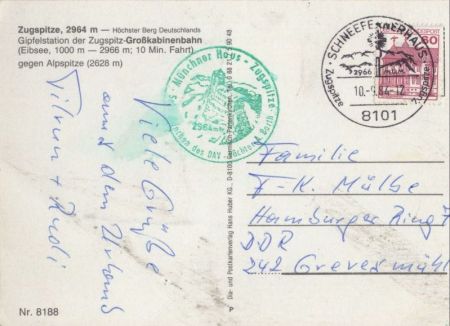 Zugspitze, 2964 m — Höchster Berg Deutschlands
Gipfelstation der Zugspitz-Großkabinenbahn
(Eibsee, 1000 m — 2966 m; 10 Min. Fahrt)
gegen Alpspitze (2628 m)
Viele Grüße
aus dem Urlaub
Tilman + Rudi
Nr. 8188
Münchner Haus · Zugspitze
2964 m
des DAV
Dia- und Postkartenverlag Hans Huber KG., D-8100 Garmisch-Partenkirchen
SCHNEEFERNERHAUS
Zugspitze
Zugspitze
2966
8101
Familie
F.-K. Mülbe
Hamburger Ring 7
DDR
242 Grevesmühl